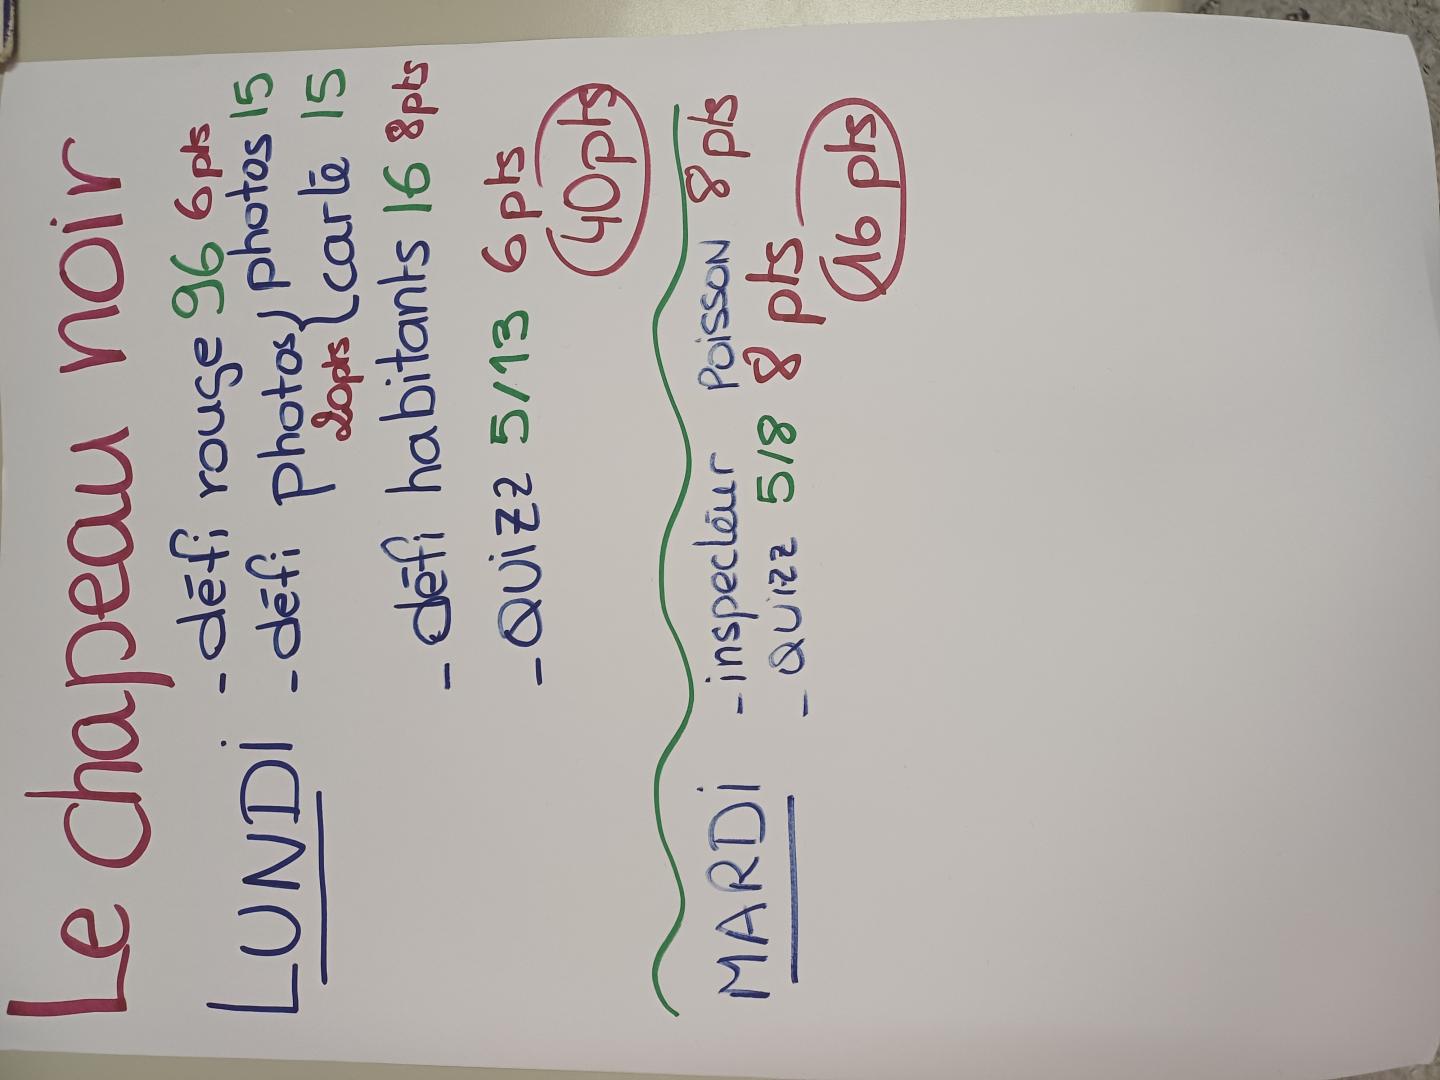 Le chapeau noir
LUNDi - défi rouge 96 6 pts
- défi photos } photos 15
20pts { carte 15
- défi habitants 16 8 pts
- QUIZZ 5/13 6 pts
40 pts
MARDi - inspecteur Poisson 8 pts
- QUIZZ 5/8 8 pts
16 pts